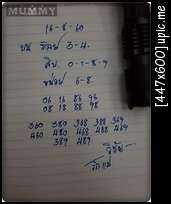 MUMMY
16-8-60
บน วิ่งบน 3-4.
สิบ. 0-1-8-9
หน่วย 6-8.
06 16 86 96
08 18 88 98
360 380 368 388 369
460 480 468 488 469
389 489
[447x600] upic.me